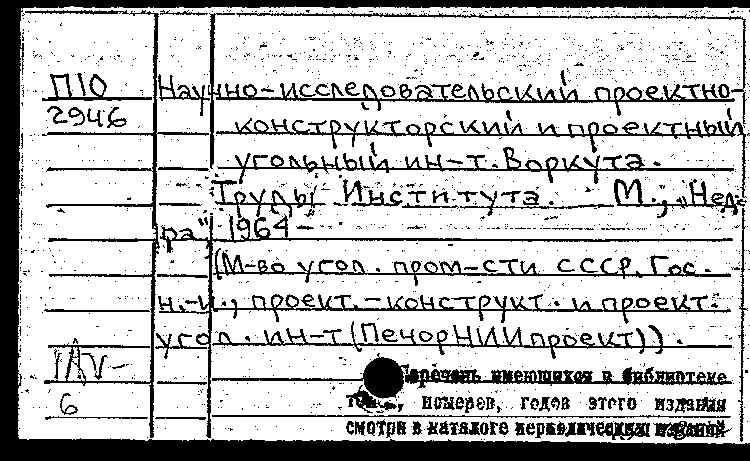 П10 Научно-исследовательский проектно-
2946 конструкторский и проектный
угольный ин-т. Воркута.
Труды Института. М., „Нед-
ра", 1964-
(М-во угол. пром-сти СССР. Гос.
н.-и., проект.-конструкт. и проект.
угол. ин-т (ПечорНИИпроект)).
Перечень имеющихся в библиотеке
6 томов, номеров, годов этого издания
смотри в каталоге периодических изданий